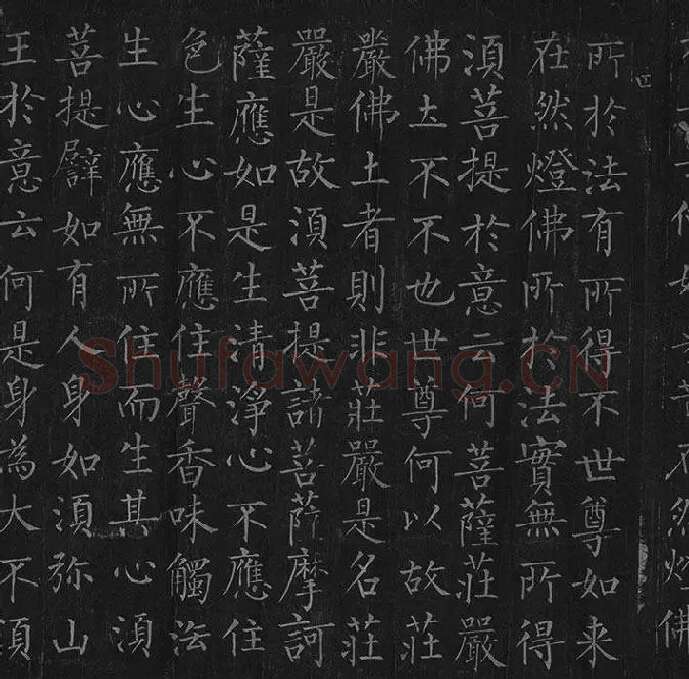 然燈佛
所於法有所得不世尊如来
在然燈佛所於法實無所得
湏菩提於意云何菩薩莊嚴
佛土不不也世尊何以故莊
嚴佛土者則非莊嚴是名莊
嚴是故湏菩提諸菩薩摩訶
薩應如是生清淨心不應住
色生心不應住聲香味觸法
生心應無所住而生其心湏
菩提譬如有人身如湏弥山
王於意云何是身為大不湏
Shufawang.CN